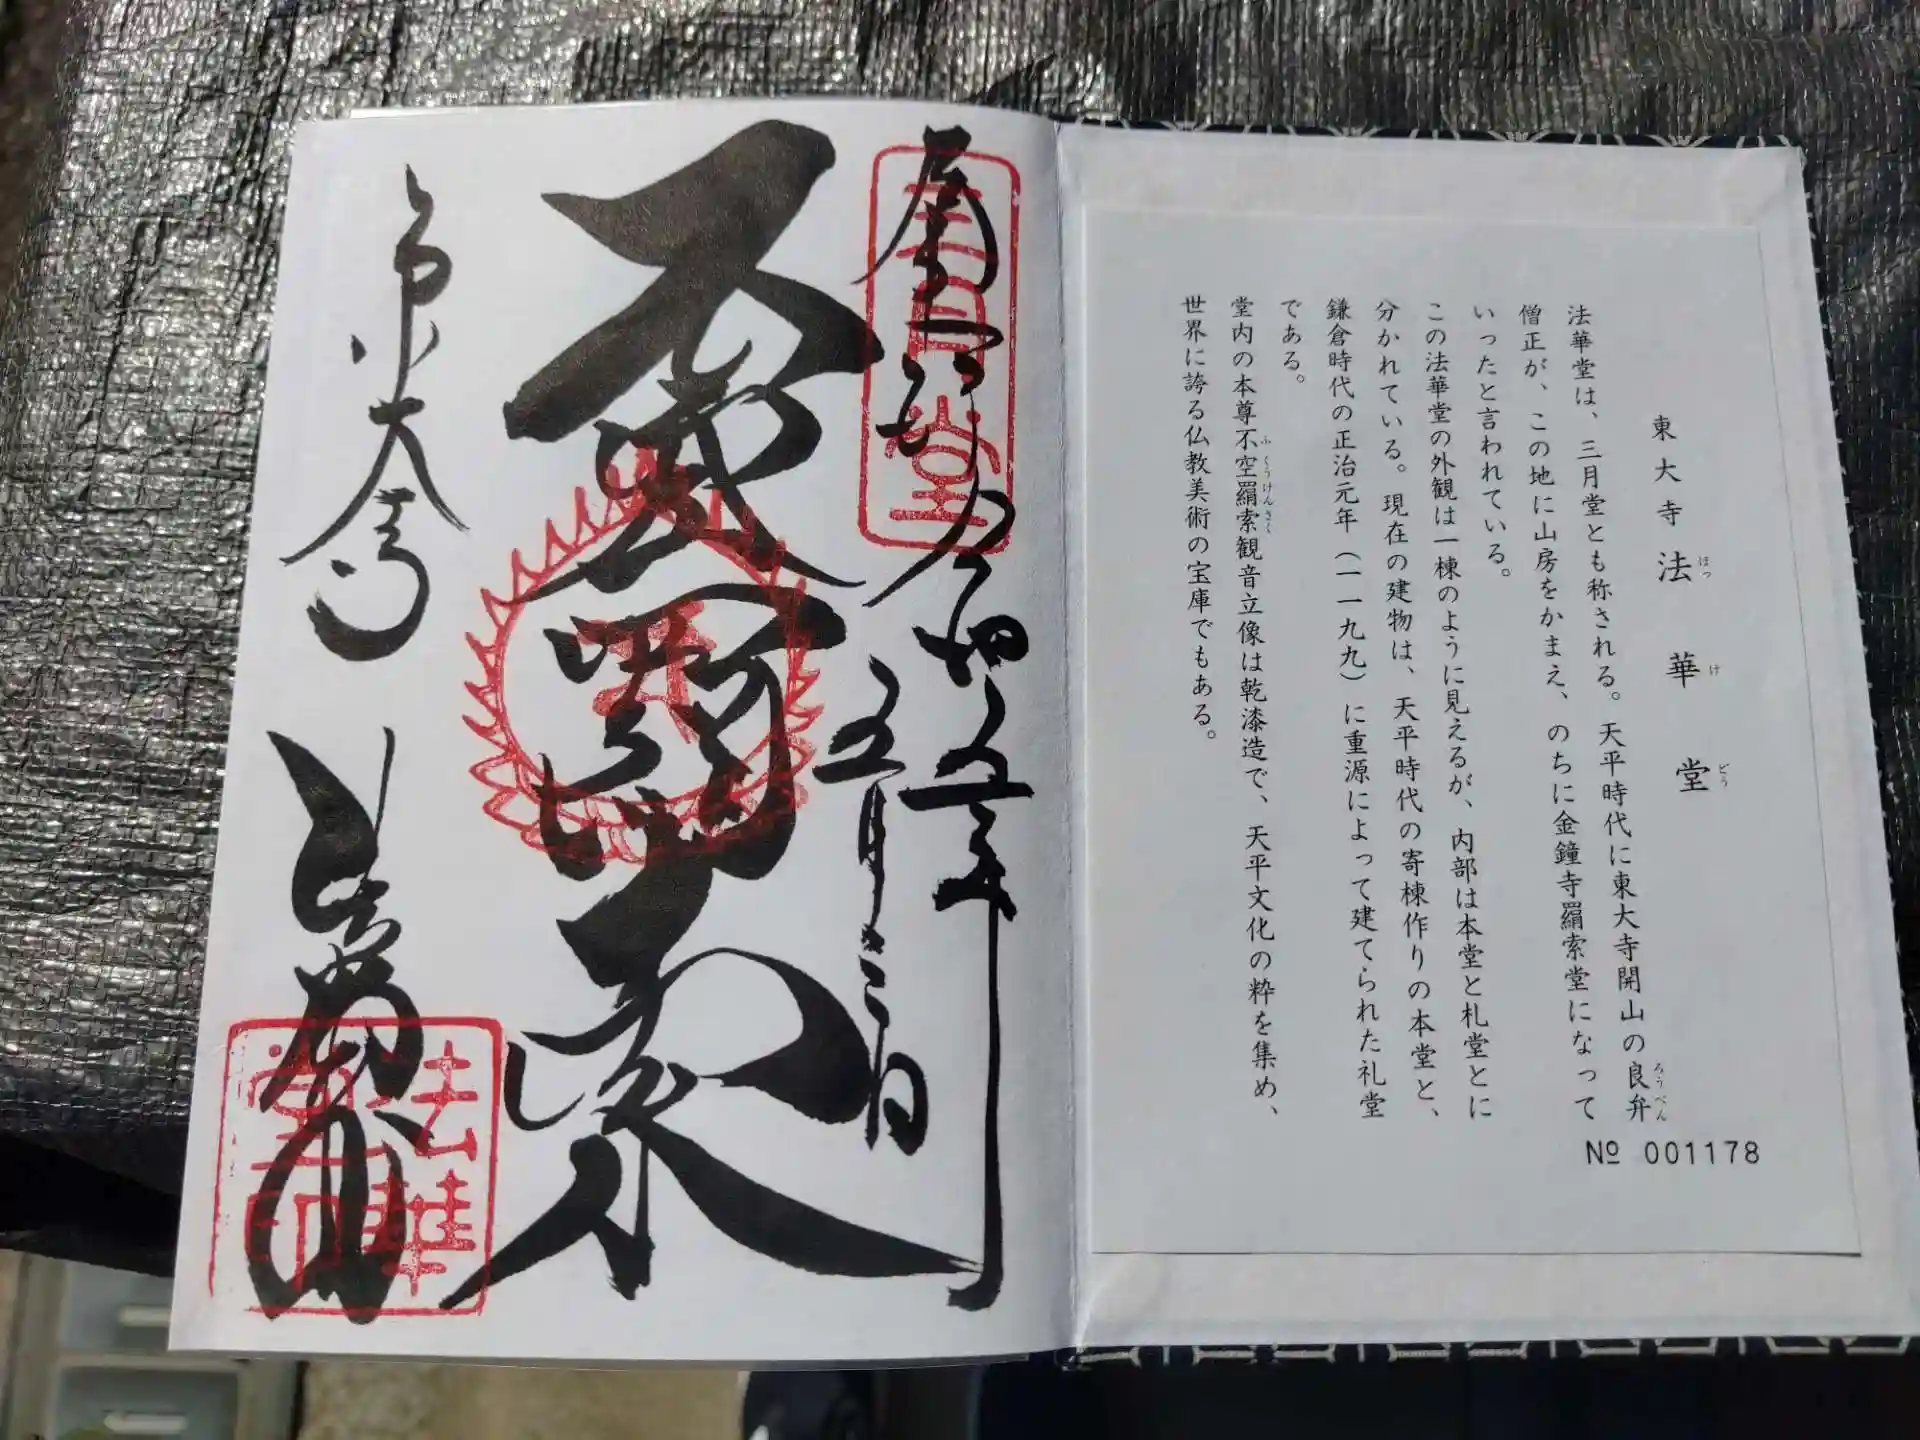 東大寺 法華堂
ほっ け どう
法華堂は、三月堂とも称される。天平時代に東大寺開山の良弁
ろうべん
僧正が、この地に山房をかまえ、のちに金鐘寺羂索堂になって
いったと言われている。
この法華堂の外観は一棟のように見えるが、内部は本堂と札堂とに
分かれている。現在の建物は、天平時代の寄棟作りの本堂と、
鎌倉時代の正治元年（一一九九）に重源によって建てられた礼堂
である。
堂内の本尊不空羂索観音立像は乾漆造で、天平文化の粋を集め、
ふくうけんさく
世界に誇る仏教美術の宝庫でもある。
№ 001178
三月堂
令和五年
五月三日
不空羂索
東大寺
法華堂印